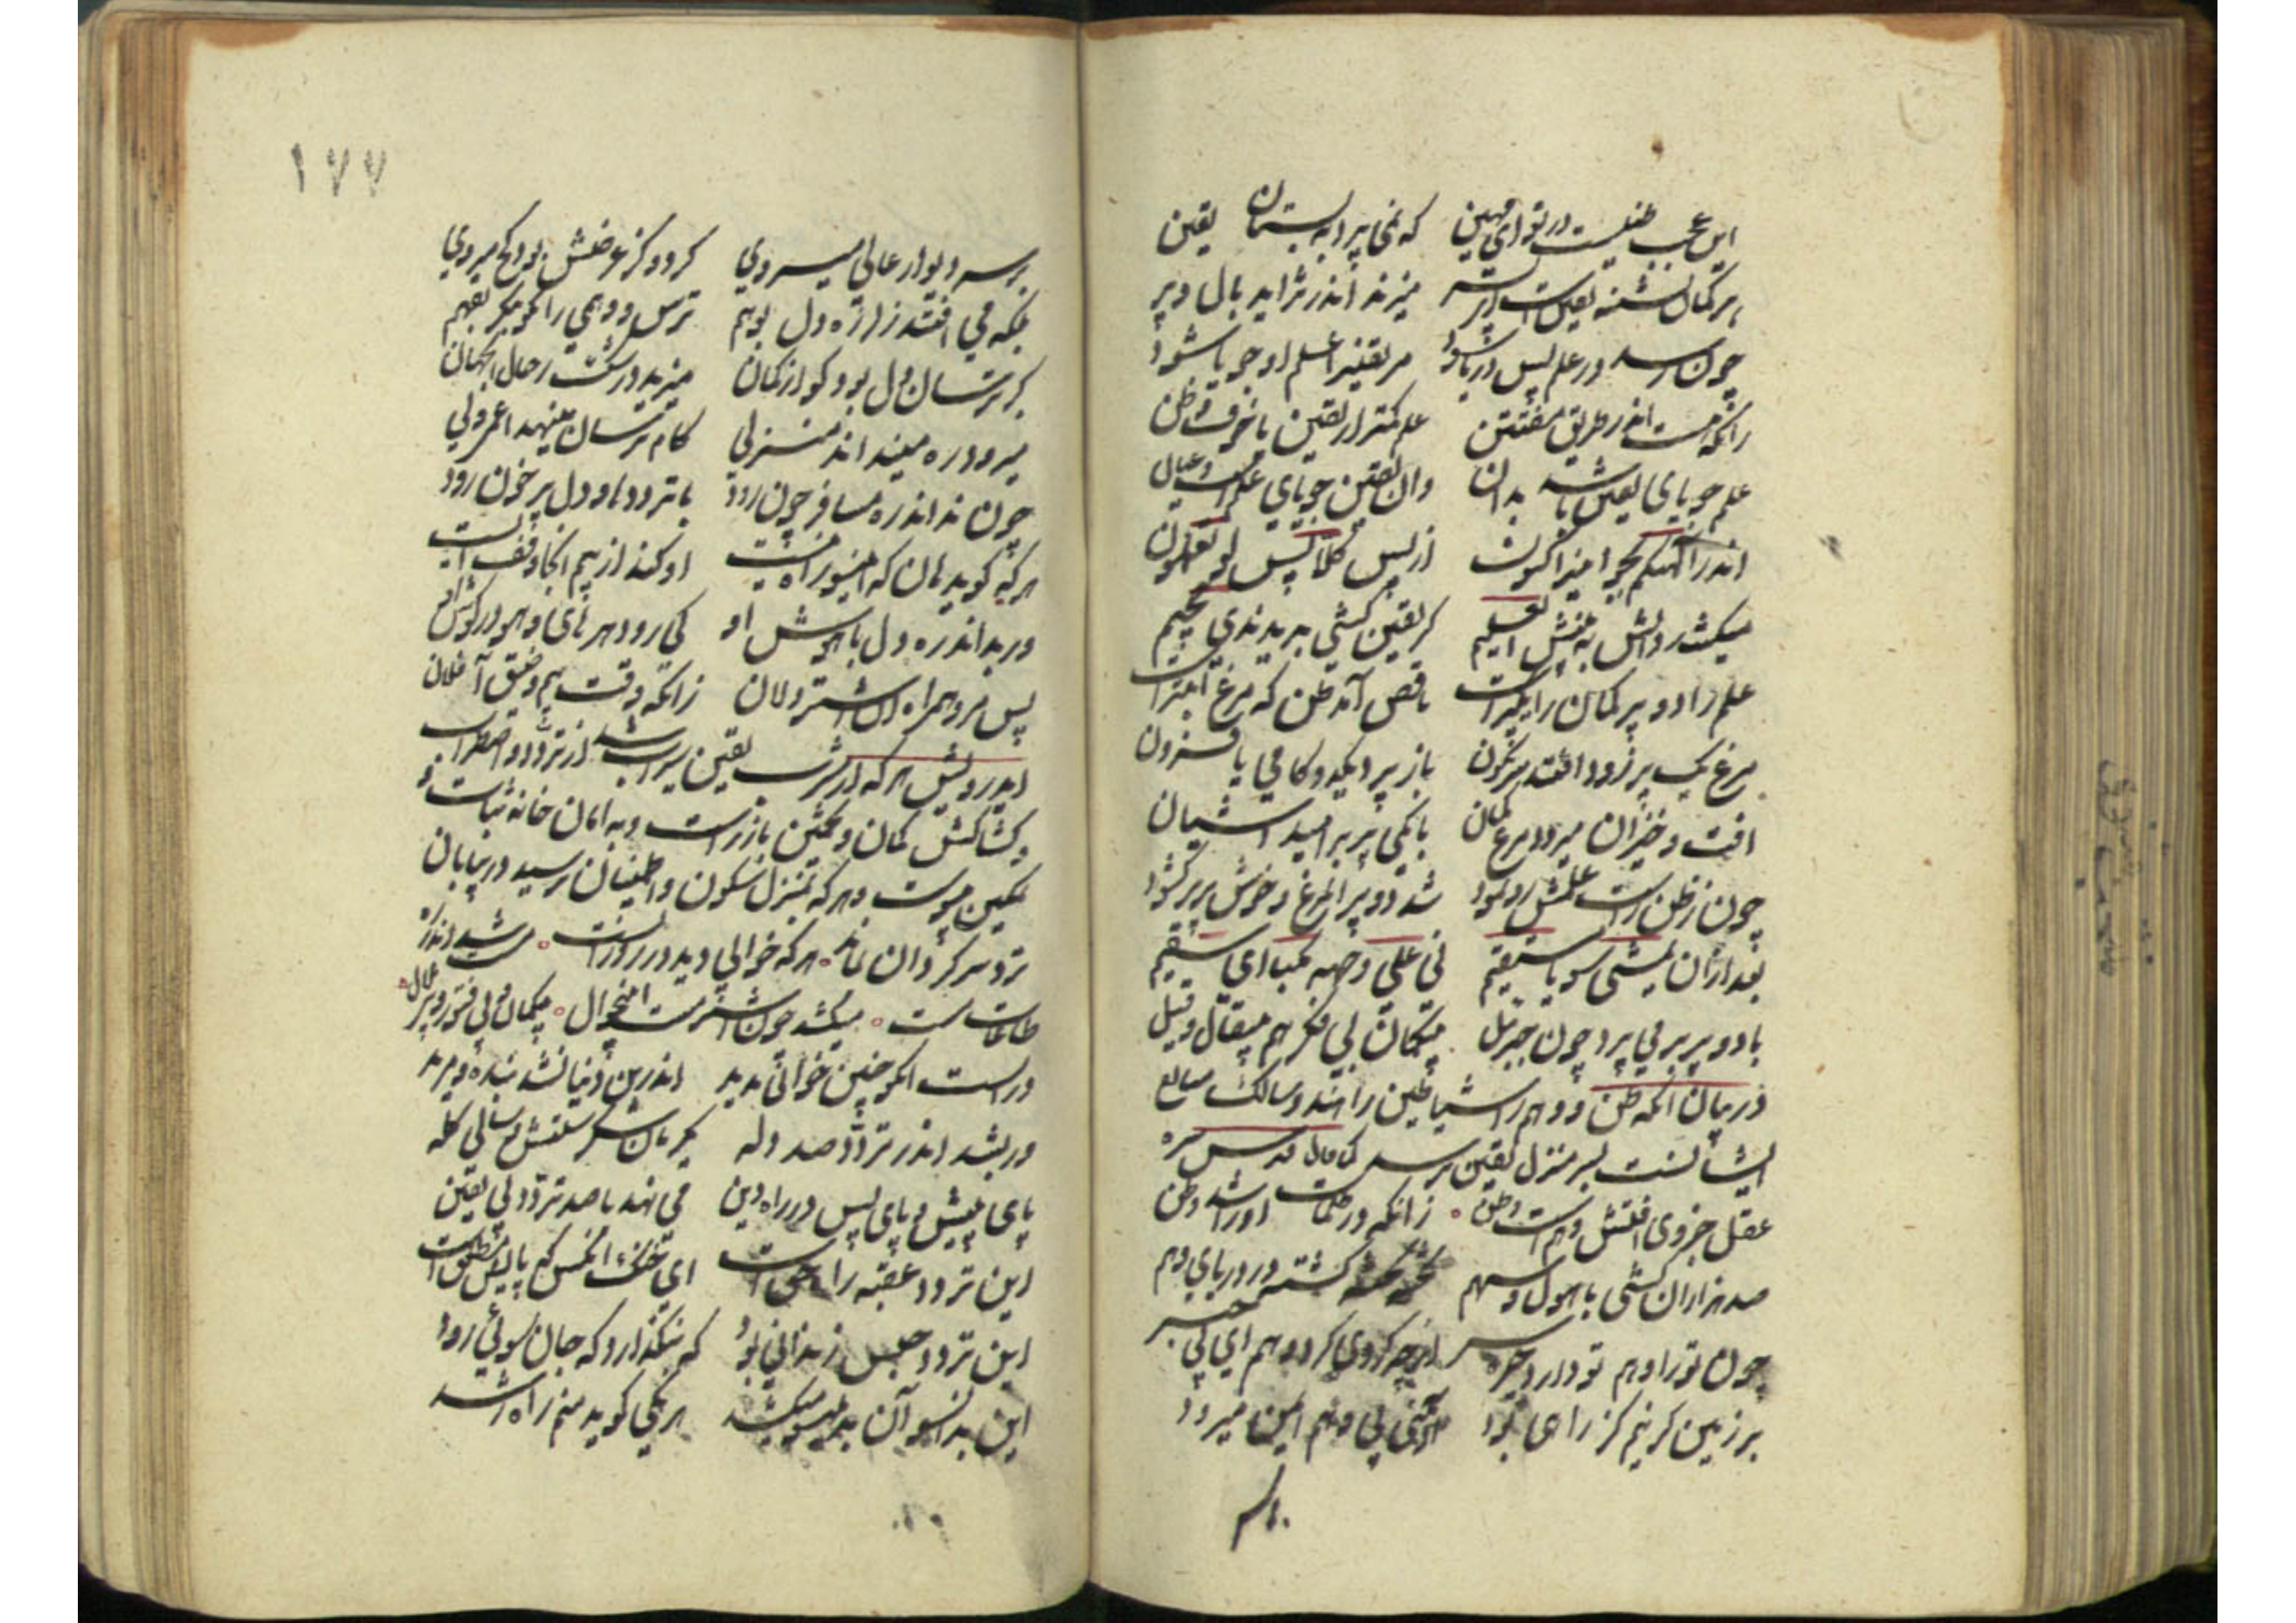 این عجب ظنیست در تو ای مهین که نمی پرد به بستان یقین
هر گمان تشنه یقین است ای پسر میزند اندر تزاید بال و پر
چون رسد در علم پس بر پا شود مر یقین را علم او جویا شود
زانکه هست اندر طریق مفتتن علم کمتر از یقین با فوق ظن
علم جویای یقین باشد بدان وان یقین جویای دیدست و عیان
اندر الهیکم بجو این را کنون از پس کلا پس لو تعلمون
میکشد دانش به بینش ای علیم گر یقین گشتی بدیدندی جحیم
علم را دو پر گمان را یک پر است ناقص آمد ظن که مرغ ابتر است
مرغ یک پر زود افتد سرنگون باز بر پرد یکدو گامی یا فزون
افت و خیزان میرود مرغ گمان با یکی پر بر امید آشیان
چون ز ظن وارست علمش رو نمود شد دو پر آن مرغ و خوش پر بر گشود
بعد از آن یمشی سویا مستقیم نی علی وجهه مکبا ای سقیم
با دو پر بر می پرد چون جبرئیل بی گمان بی فکر هم بی قال و قیل
در بیان آنکه ظن و وهم را شیاطین راهند و سالک میانه
ایشان بسر منزل یقین نرسد کما قال قدس سره
عقل جزوی آفتش وهم است و ظن زانکه در ظلمات او را شد وطن
صد هزاران کشتی با هول و سهم تخته تخته گشته در دریای وهم
چون تو را وهم تو دارد خیره سر از چه گردی گرد وهم ای بی خبر
بر زمین گر نیم گز راهی بود آدمی بی وهم ایمن میرود
بر سر
۱۷۷
بر سر دیوار عالی میروی گر دو گز عرضش بود کج میروی
بلکه می افتد ز لرزه دل بوهم ترس و وهمی را نکو بنگر بفهم
میرود ره میند اند منزلی گام ترسان مینهد اعمی دلی
چون نداند ره مسافر چون رود با تردد ها و دل پر خون رود
هر که گوید هان که اینسو راه نیست او کند از بیم آنجا وقف و ایست
ور بداند ره دل باهوش او کی رود هر های و هو در گوش او
پس مرو همراه این اشتر دلان زانکه وقت بیم و ضیق آفلان
ای درویش هر که از شرب یقین سیراب شد از تردد و اضطراب
و کشاکش گمان و تخمین باز رست و به امان خانه ثبات و
تمکین پیوست و هر که بمنزل سکون و اطمینان نرسید در بیابان
تردد سرگردان بماند هر که خوابی دید در روز الست مست شد اندر ره
طاعات مست میکشد چون اشتر مست این جوال بی گمان و بی فتور و بی ملال
در الست آنکو چنین خوابی ندید اندرین دنیا نشد بنده و مرید
ور بشد اندر تردد صد دله یکزمان شکرستش و سالی گله
پای پیش و پای پس در راه دین می نهد با صد تردد بی یقین
این تردد عقبه راه حق است ای خنک آنکس که پایش مطلق است
این تردد حبس زندانی بود که بنگذارد که جان سوئی رود
این بدین سو آن بدان سو میکشد هر یکی گوید منم راه رشد